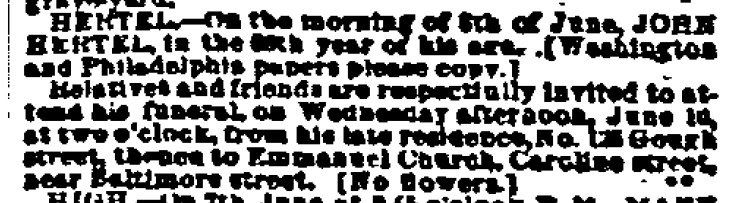 HERTEL.—On the morning of 8th of June, JOHN
HERTEL, in the year of his age. .[Washington
and Philadelphia papers please copy.]
Relatives and friends are respectfully invited to at-
tend his funeral, on Wednesday afternoon, June 10,
at two o'clock, from his late residence, No. Gough
street, thence to Emmanuel Church, Caroline street,
near Baltimore street. [No flowers.]
7th June